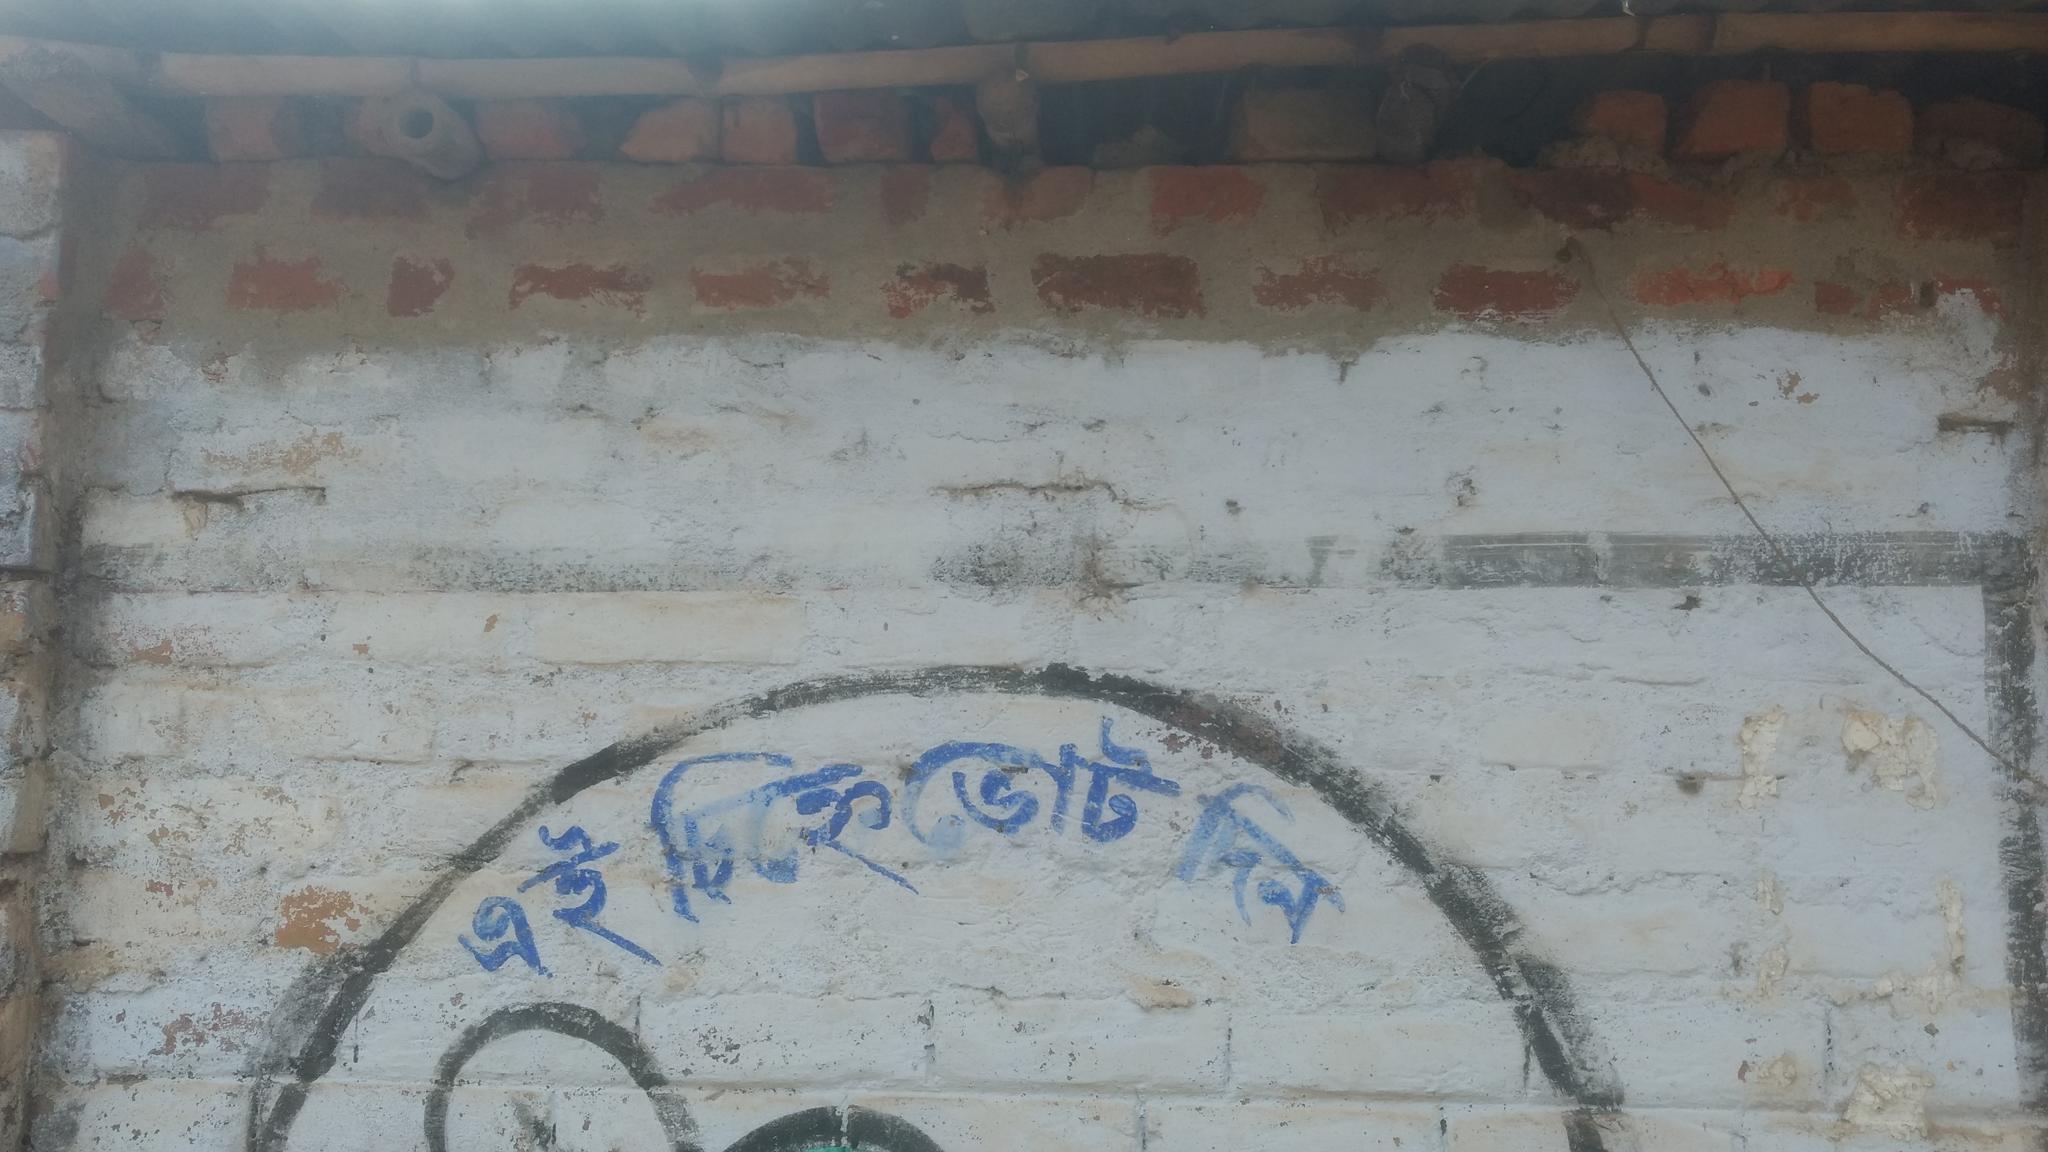 এই চিহ্নে ভোট দিন